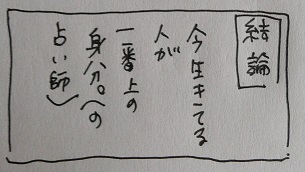 結論
今生きてる
人が
一番上の
身分。(の
占い師)